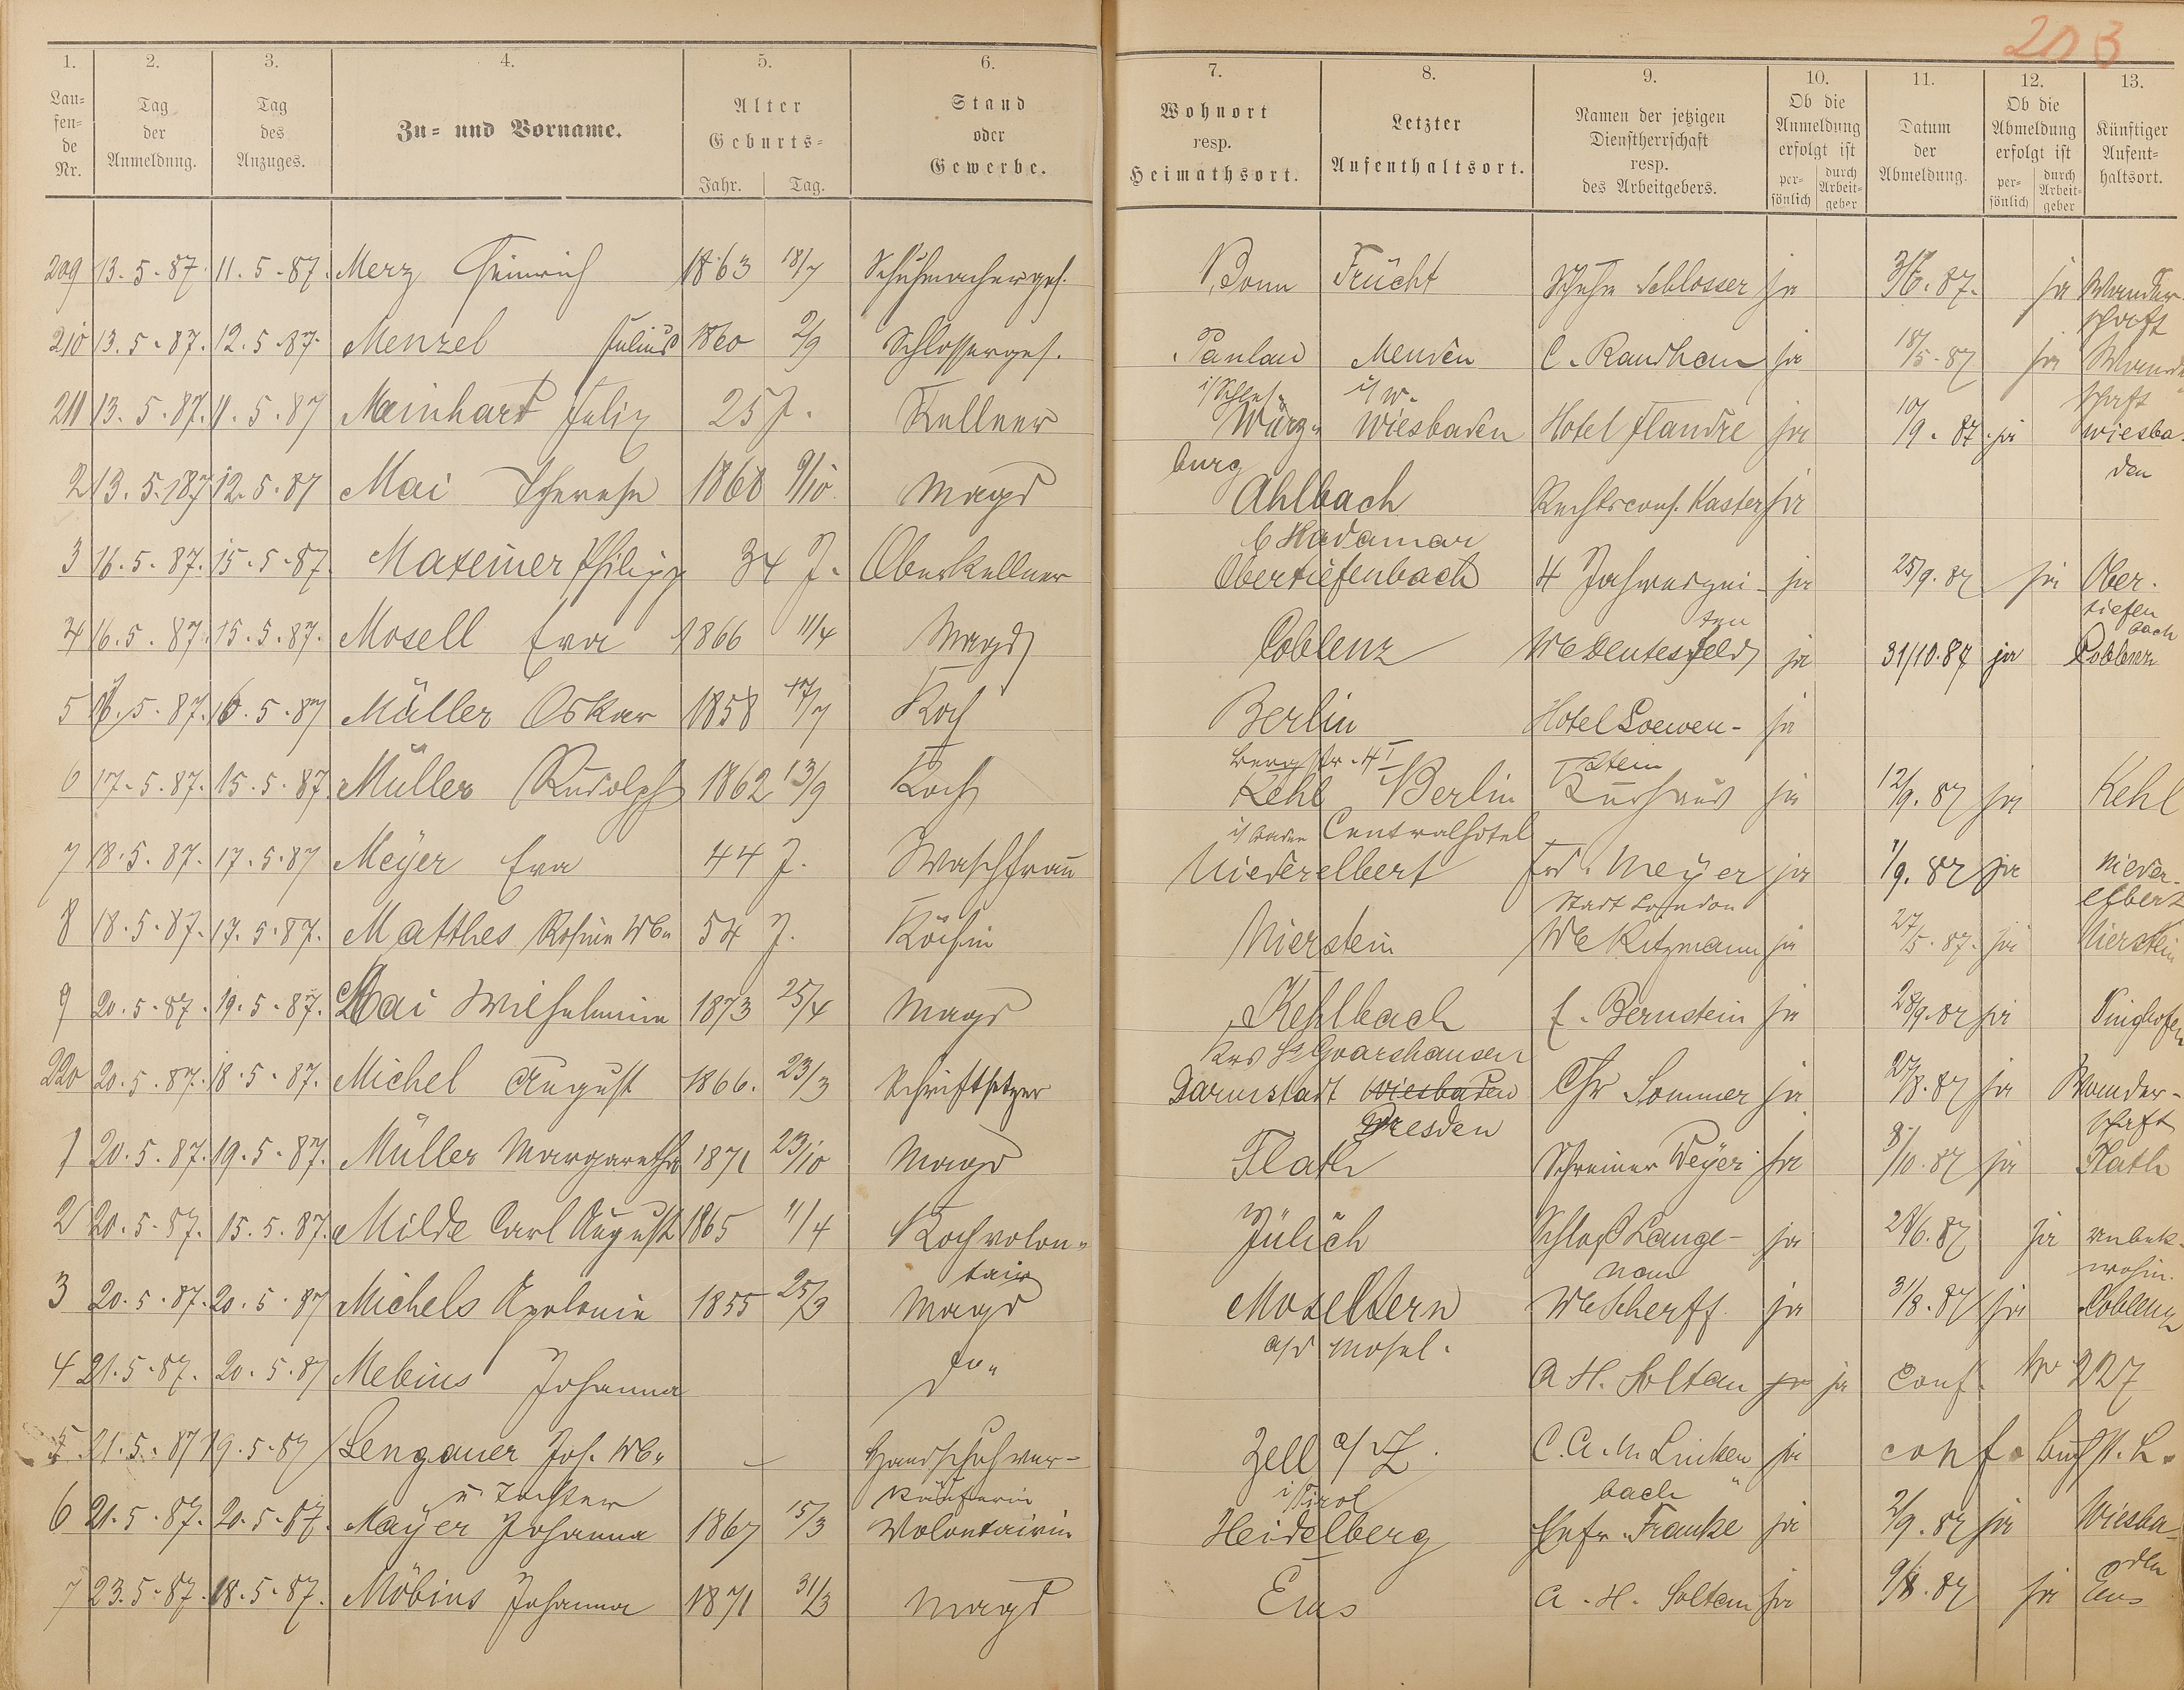 203
1. 2. 3. 4. 5. 6. 7. 8. 9. 10. 11. 12. 13.
Lau=
fen=
de
Nr.
Tag
der
Anmeldung.
Tag
des
Anzuges.
Zu= und Vorname.
Alter
Geburts=
Jahr. Tag.
Stand
oder
Gewerbe.
Wohnort
resp.
Heimathsort.
Letzter
Aufenthaltsort.
Namen der jetzigen
Dienstherrschaft
resp.
des Arbeitgebers.
Ob die
Anmeldung
erfolgt ist
per=
sönlich
durch
Arbeit=
geber
Datum
der
Abmeldung.
Ob die
Abmeldung
erfolgt ist
per=
sönlich
durch
Arbeit=
geber
Künftiger
Aufent=
haltsort.
209 13.5.87. 11.5.87. Merz Heinrich 1863 18/7 Schuhmacherges. Bonn Frücht Schuhm Schlosser ja 3/6.87. ja Wander-
schaft
210 13.5.87. 12.5.87. Menzel Julius 1860 2/9 Schlosserges. Menden C. Randhan ja 18/5.87 ja Wander
i/Schles. i/W. schaft
211 13.5.87. 11.5.87 Meinhard Felix 25 J. Kellner Würz- Wiesbaden Hotel Flandre ja 10/9.87. ja Wiesba-
burg den
2 13.5.187 12.5.87 Mai Therese 1868 9/10. Magd Ahlbach Rechtscons. Kaster ja
b Hadamar
3 16.5.87. 15.5.87. Mateiner Philipp 34 J. Oberkellner Obertiefenbach 4 Jahreszei- ja 25/9.87 ja Ober-
ten tiefen
bach
4 16.5.87. 15.5.87. Mosell Eva 1866 11/4 Magd Coblenz We Deutesfeld ja 31/10.87 ja Coblenz
5 16.5.87. 16.5.87 Müller Oskar 1858 17/7 Koch Berlin Hotel Loewen- ja
Bergstr. 4 I stein
6 17.5.87. 15.5.87. Müller Rudolph 1862 13/9 Koch Kehl Berlin Kurhaus ja 12/9.87 ja Kehl
i/Baden Centralhotel
7 18.5.87. 17.5.87 Meyer Eva 44 J. Waschfrau Niederelbert Frd. Meyer ja 1/9.87 ja Nieder-
Stadt London elbert
8 18.5.87. 17.5.87. Matthes Rosine We. 54 J. Köchin Nierstein We Kitzmann ja 27/5.87. ja Nierstein
9 20.5.87. 19.5.87. Mai Wilhelmine 1873 25/4 Magd Kehlbach E. Bernstein ja 28/9.87 ja
Krs St Goarshausen
220 20.5.87. 18.5.87. Michel August 1866. 23/3 Schriftsetzer Darmstadt Wiesbaden Chr Sommer ja 27/8.87 ja Wander-
Dresden schaft
1 20.5.87. 19.5.87. Müller Margaretha 1871 23/10 Magd Flath Schreiner Deyer ja 8/10.87 ja Flath
2 20.5.87. 15.5.87. Milde Carl August 1865 11/4 Kochvolon- Jülich Schloß Lange- ja 28/6.87 ja unbek.
tair nau wohin.
3 20.5.87. 20.5.87 Michels Apolonia 1855 25/3 Magd Moseltern We Scherff ja 31/8.87 ja Coblenz
a/d Mosel.
4 21.5.87. 20.5.87 Mebius Johanna do. A H. Soltau ja ja conf. No 227
5 21.5.87 19.5.87 Lengauer Jos. We. Handschuhver- Zell a/Z. C.A.M. Linken ja conf. Buchst. L.
u. Tochter käuferin i/Tirol bach
6 21.5.87. 20.5.87. Mayer Johanna 1867 15/3 Volontairin Heidelberg Franke ja 2/9.87 ja Wiesba-
den
7 23.5.87. 18.5.87. Möbius Johanna 1871 31/3 Magd Ems A. H. Soltau ja 9/8.87 ja Ems